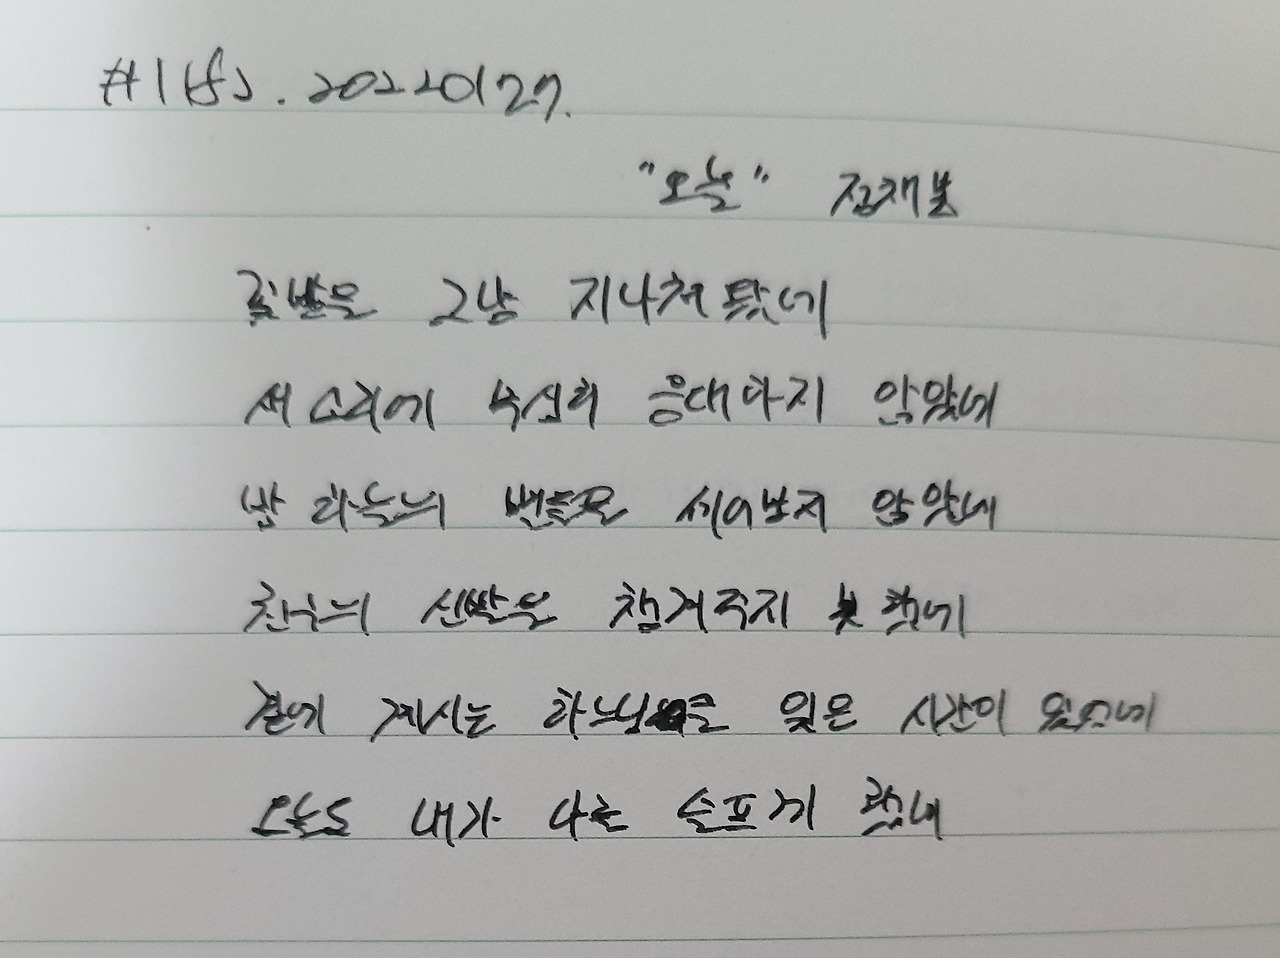 20220127.
"오늘" 정채봉
꽃밭을 그냥 지나쳐 왔네
새 소리에 무심히 응대하지 않았네
밤 하늘의 별들을 세어보지 않았네
친구의 신발을 챙겨주지 못했네
곁에 계시는 하느님을 잊은 시간이 있었네
오늘도 내가 나를 슬프게 했네